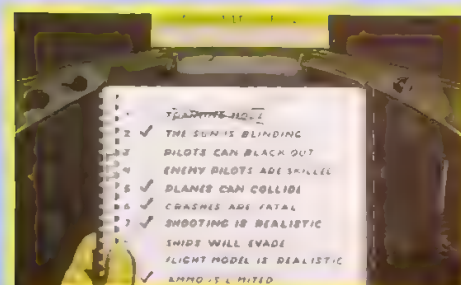 TRAINING MODE
2 ✓ THE SUN IS BLINDING
3 PILOTS CAN BLACK OUT
4 ENEMY PILOTS ARE SKILLED
5 ✓ PLANES CAN COLLIDE
6 ✓ CRASHES ARE FATAL
7 ✓ SHOOTING IS REALISTIC
SHIPS WILL EVADE
FLIGHT MODEL IS REALISTIC
✓ AMMO IS LIMITED